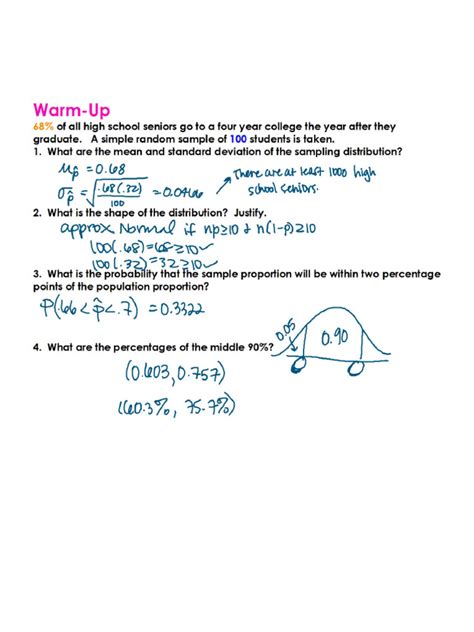 Warm-Up
68% of all high school seniors go to a four year college the year after they
graduate. A simple random sample of 100 students is taken.
1. What are the mean and standard deviation of the sampling distribution?
μp̂ = 0.68
σp̂ = √(.68(.32)/100) = 0.0466
There are at least 1000 high
school seniors.
2. What is the shape of the distribution? Justify.
approx Normal if np≥10 & n(1-p)≥10
100(.68)=68≥10✓
100(.32)=32≥10✓
3. What is the probability that the sample proportion will be within two percentage
points of the population proportion?
P(.66<p̂<.7)=0.3322
4. What are the percentages of the middle 90%?
0.05
0.90
(0.603,0.757)
(60.3%, 75.7%)